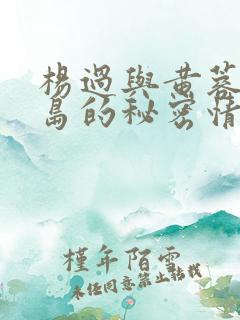 楊過與黃蓉
島的秘密情
槿年陌雪
未经同意禁止转载